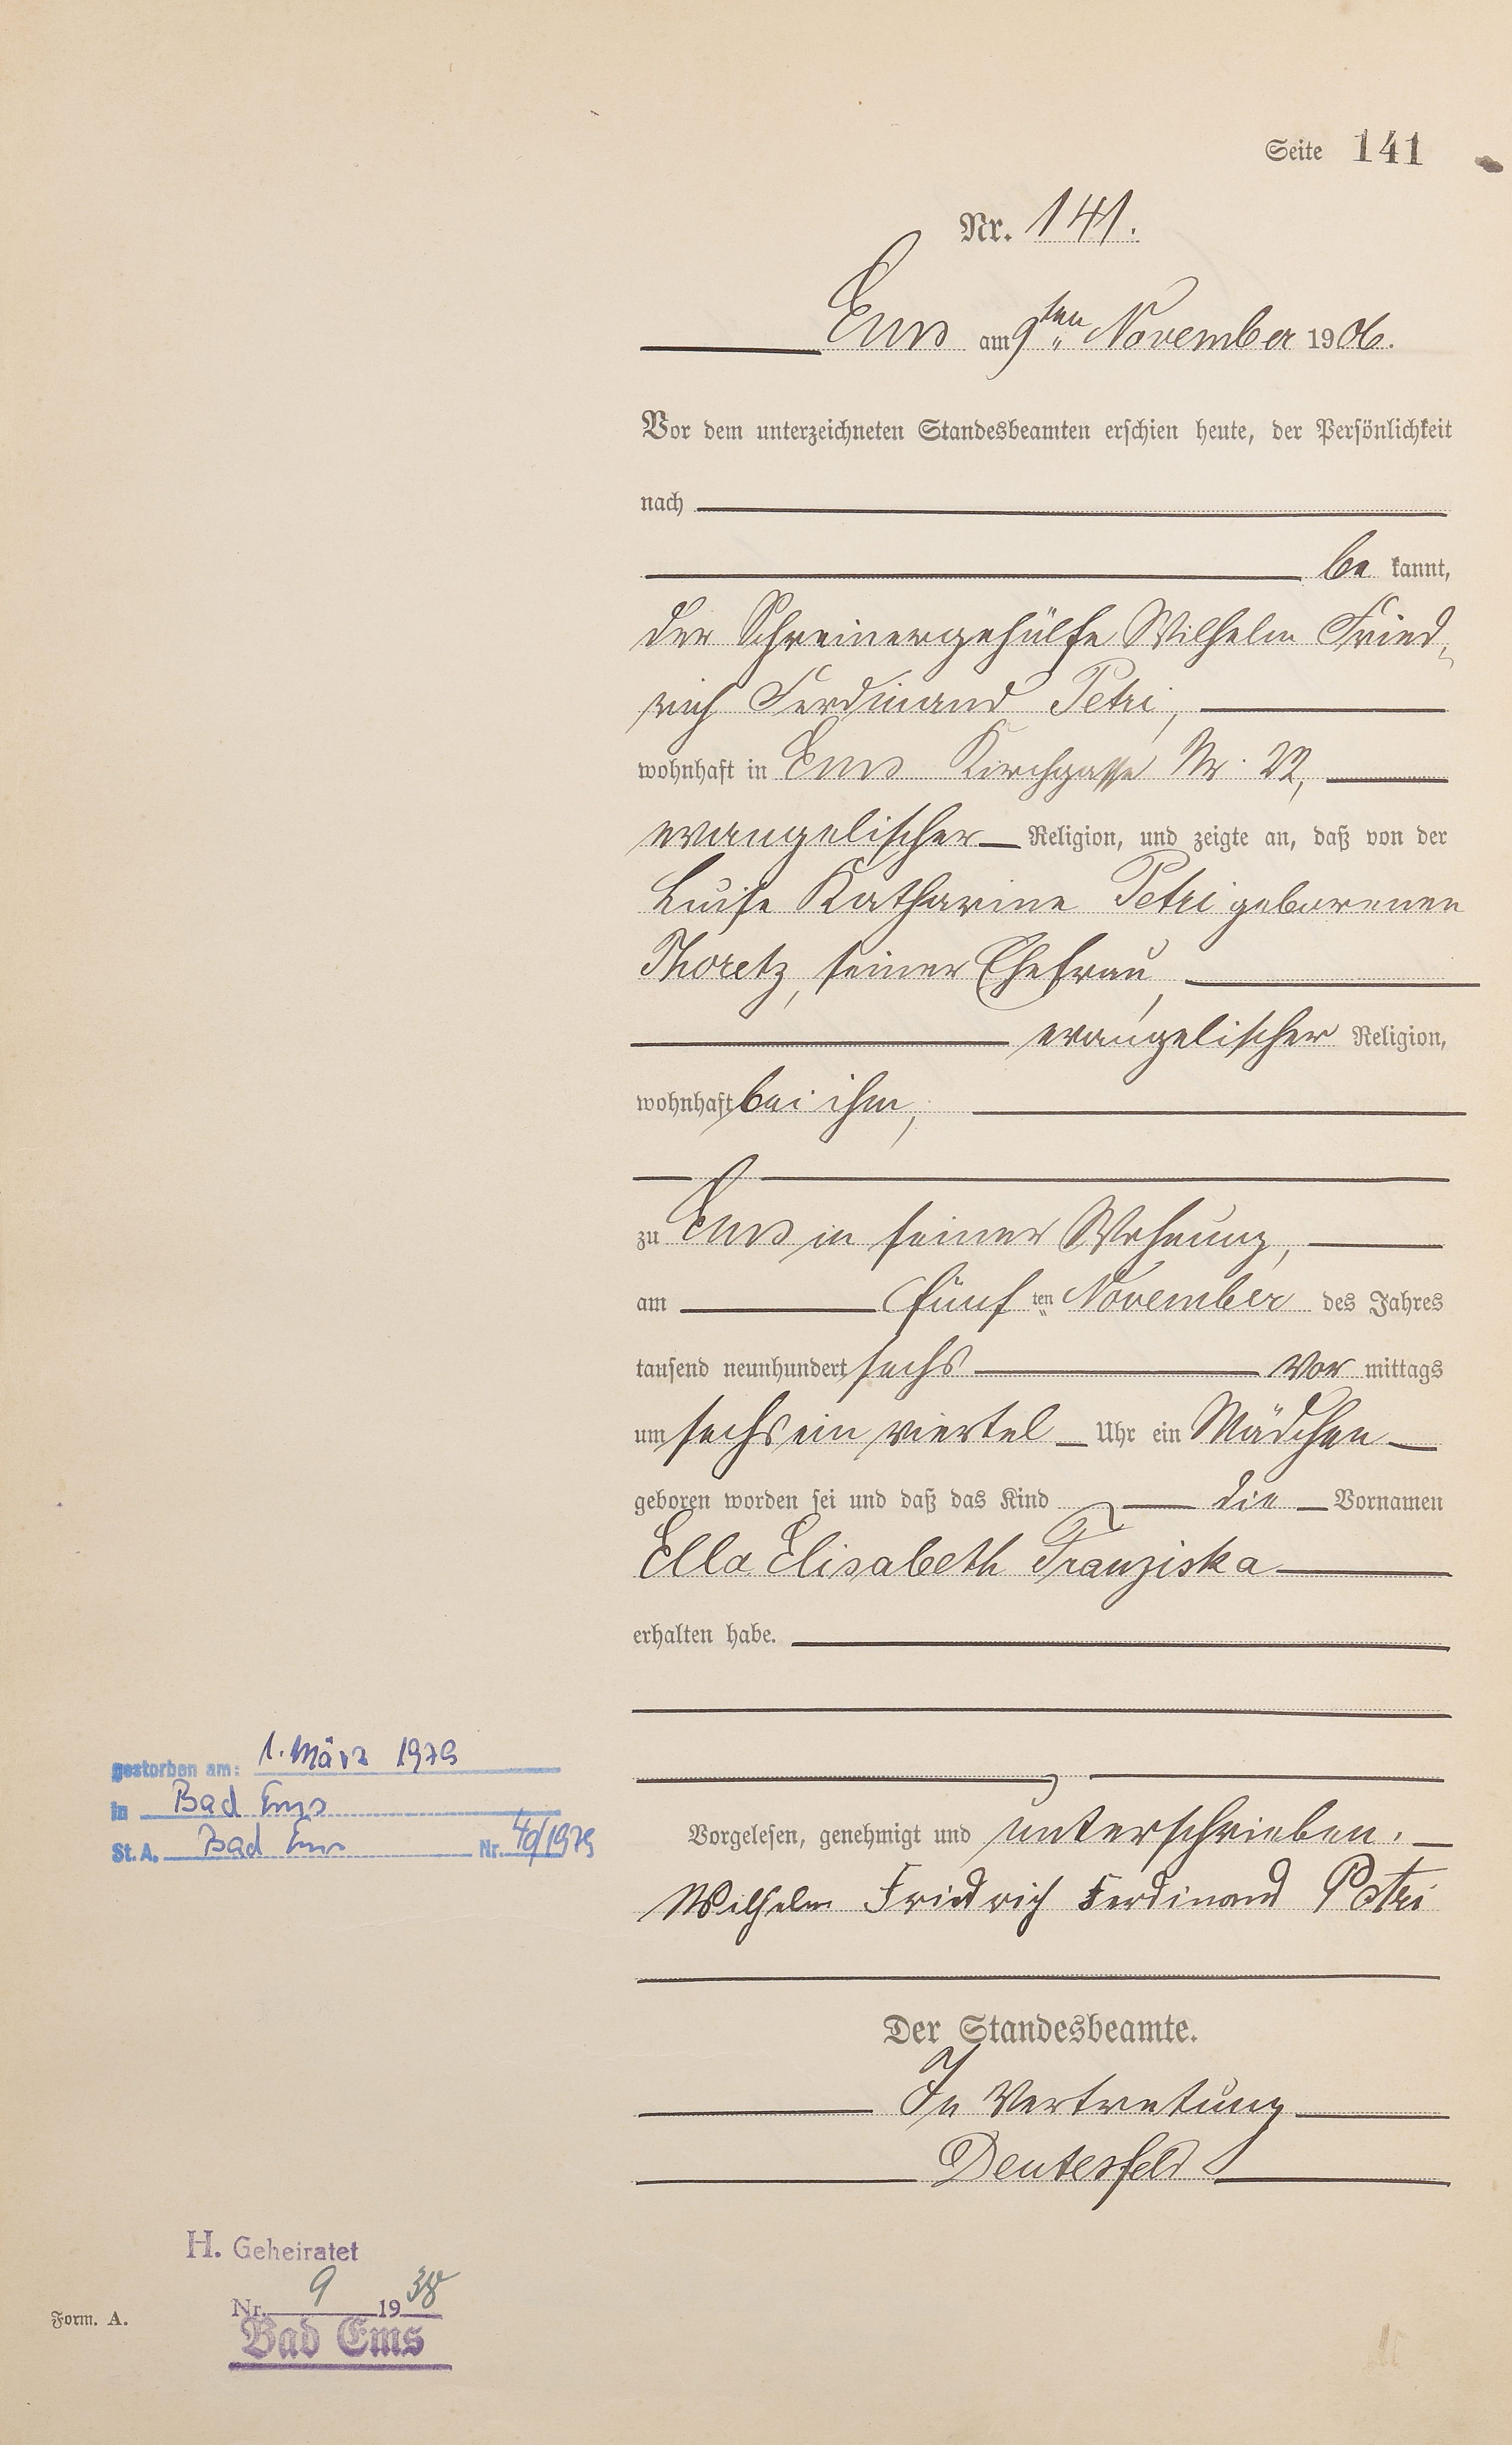 Seite 141
Nr. 141.
Ems am 9ten November 1906.
Vor dem unterzeichneten Standesbeamten erschien heute, der Persönlichkeit
nach
be kannt,
der Schreinergehülfe Wilhelm Fried-
rich Ferdinand Petri,
wohnhaft in Ems Kirchgasse Nr. 22,
evangelischer Religion, und zeigte an, daß von der
Luise Katharine Petri geborenen
Thoretz, seiner Ehefrau,
evangelischer Religion,
wohnhaft bei ihm,
zu Ems in seiner Wohnung,
am fünf ten November des Jahres
tausend neunhundert sechs Vor mittags
um sechs ein viertel Uhr ein Mädchen
geboren worden sei und daß das Kind die Vornamen
Ella Elisabeth Franziska
erhalten habe.
gestorben am: 1. März 1979
in Bad Ems
St. A. Bad Ems Nr. 40/1979
Vorgelesen, genehmigt und unterschrieben.
Wilhelm Friedrich Ferdinand Petri
Der Standesbeamte.
In Vertretung
Deutesfeld
H. Geheiratet
Nr. 9 1938
Bad Ems
Form. A.